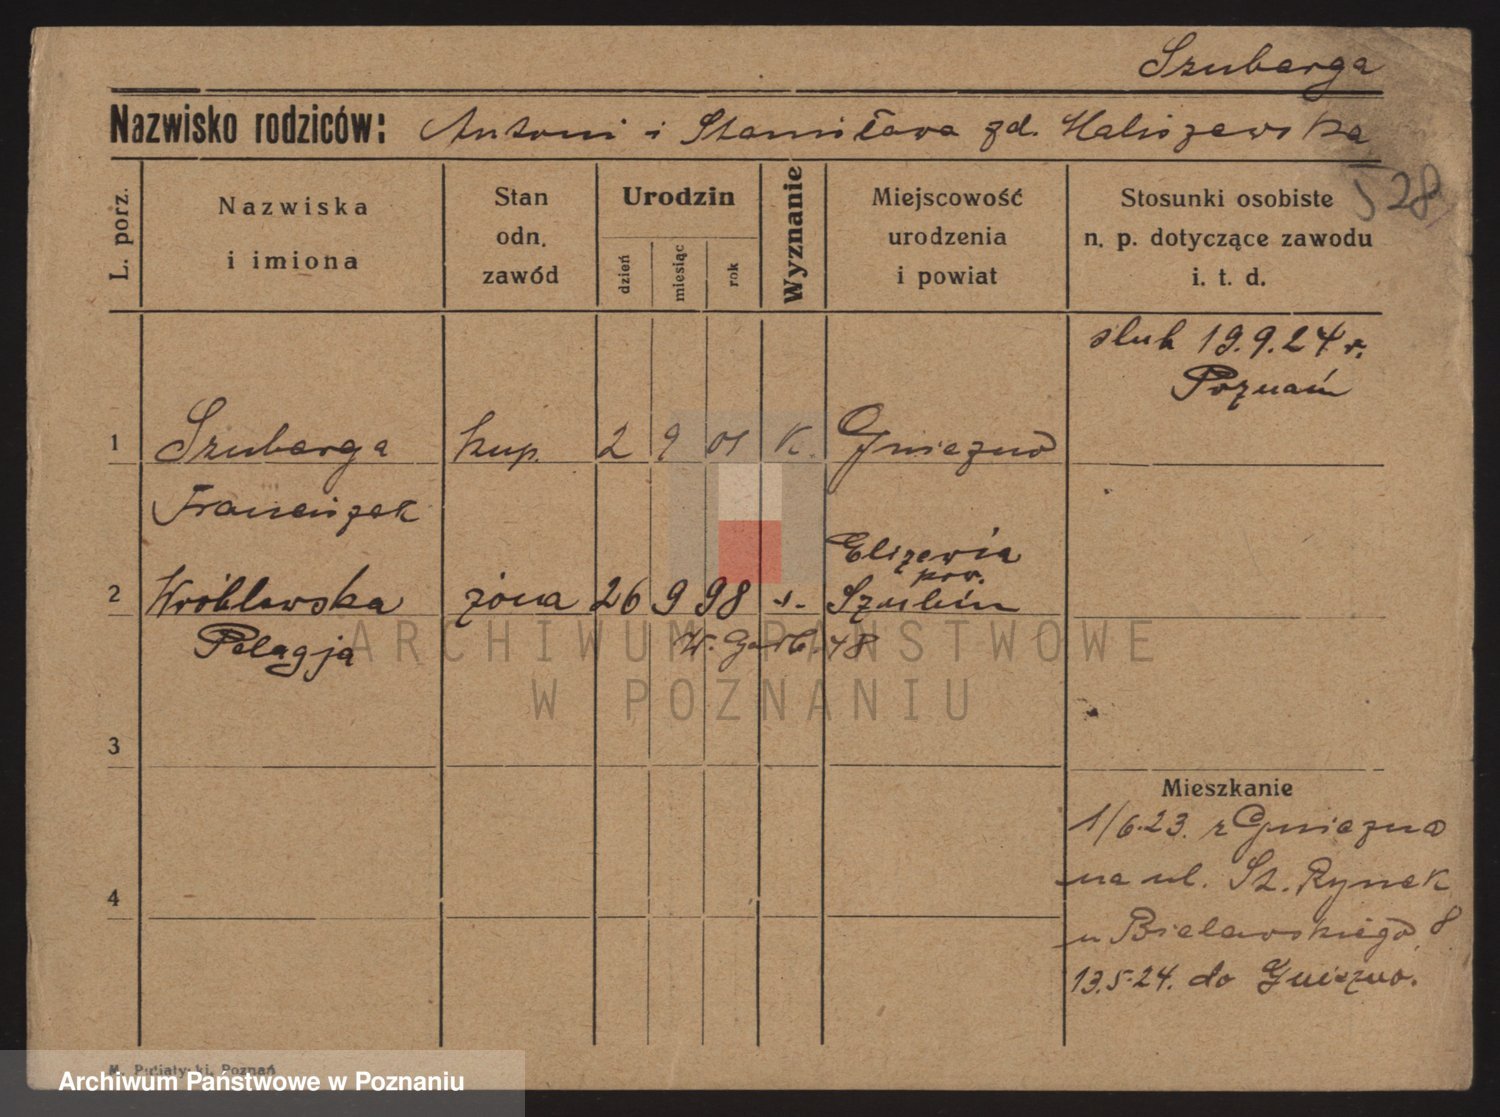 Szubarga
Nazwisko rodziców: Antoni i Stanisława zd. Haliszewska
528
L. porz.
Nazwiska
i imiona
Stan
odn.
zawód
Urodzin
dzień
miesiąc
rok
Wyznanie
Miejscowość
urodzenia
i powiat
Stosunki osobiste
n. p. dotyczące zawodu
i. t. d.
slub 19.9.24 r.
Poznań
1 Szubarga kup. 2 9 01 K. Gniezno
Franciszek
Elizewia
pow.
2 Wróblewska żona 26 9 98 Szubin
Pelagja W. Garb. 48
ARCHIWUM PAŃSTWOWE
W POZNANIU
3
Mieszkanie
1/6.23. z Gniezna
na ul. St. Rynek
4
u Bielawskiego 8
13.5.24. do Gniezno.
M. Putiatycki, Poznań
Archiwum Państwowe w Poznaniu